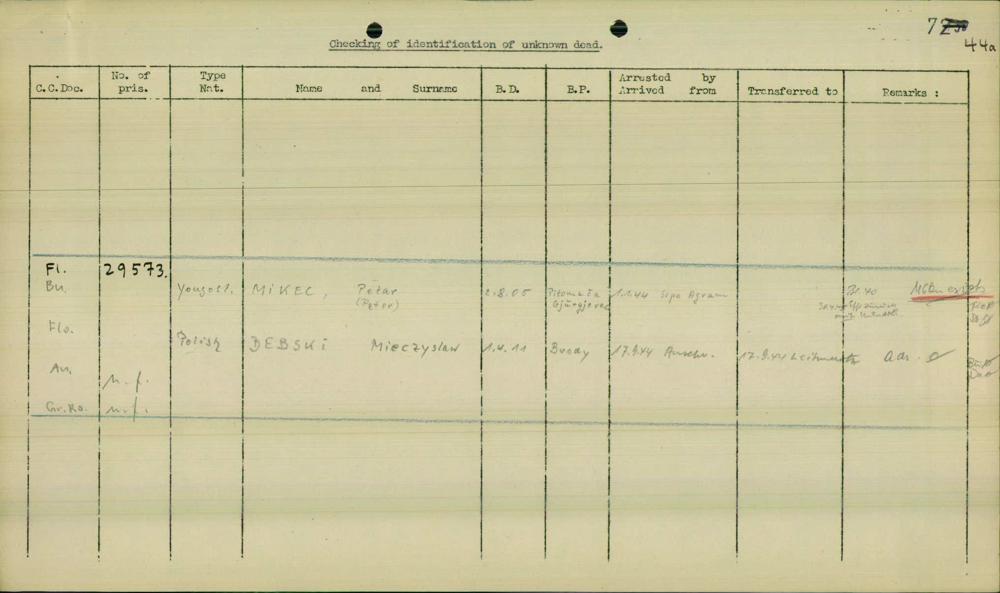 72
44a
Checking of identification of unknown dead.
C.C.Doc. No. of pris. Type Nat. Name and Surname B.D. B.P. Arrested by Arrived from Transferred to Remarks :
Fl. 29573.
Bu. Yougosl. MiKEC, Petar (Peter) 2.8.05 1.1.44 Sipo Agram
Flo.
Polish DEBSKi Mieczyslaw 1.4.11 Brody 17.9.44 Auschw. 17.9.44 Leitmeritz adr.
Au. n.f.
Gr.Ro. n.f.